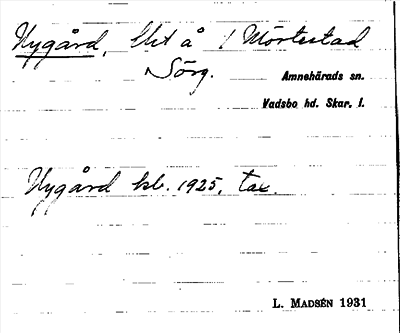 Nygård, Utå / Mörtestad
Sörg.
Amnehärads sn.
Vadsbo hd. Skar. l.
Nygård kb. 1925, tax.
L. MADSÉN 1931